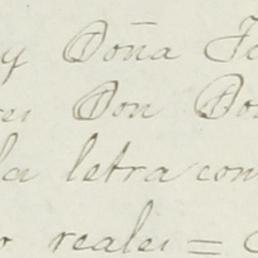 y Doña
Don
la letra con
reales =